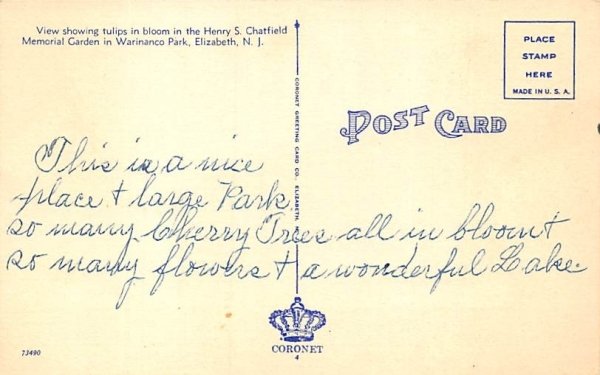 View showing tulips in bloom in the Henry S. Chatfield
Memorial Garden in Warinanco Park, Elizabeth, N. J.
PLACE
STAMP
HERE
MADE IN U. S. A.
POST CARD
CORONET GREETING CARD CO., ELIZABETH,
This is a nice
place + large Park
so many Cherry Trees all in bloom +
so many flowers + a wonderful Lake.
CORONET
4
73490